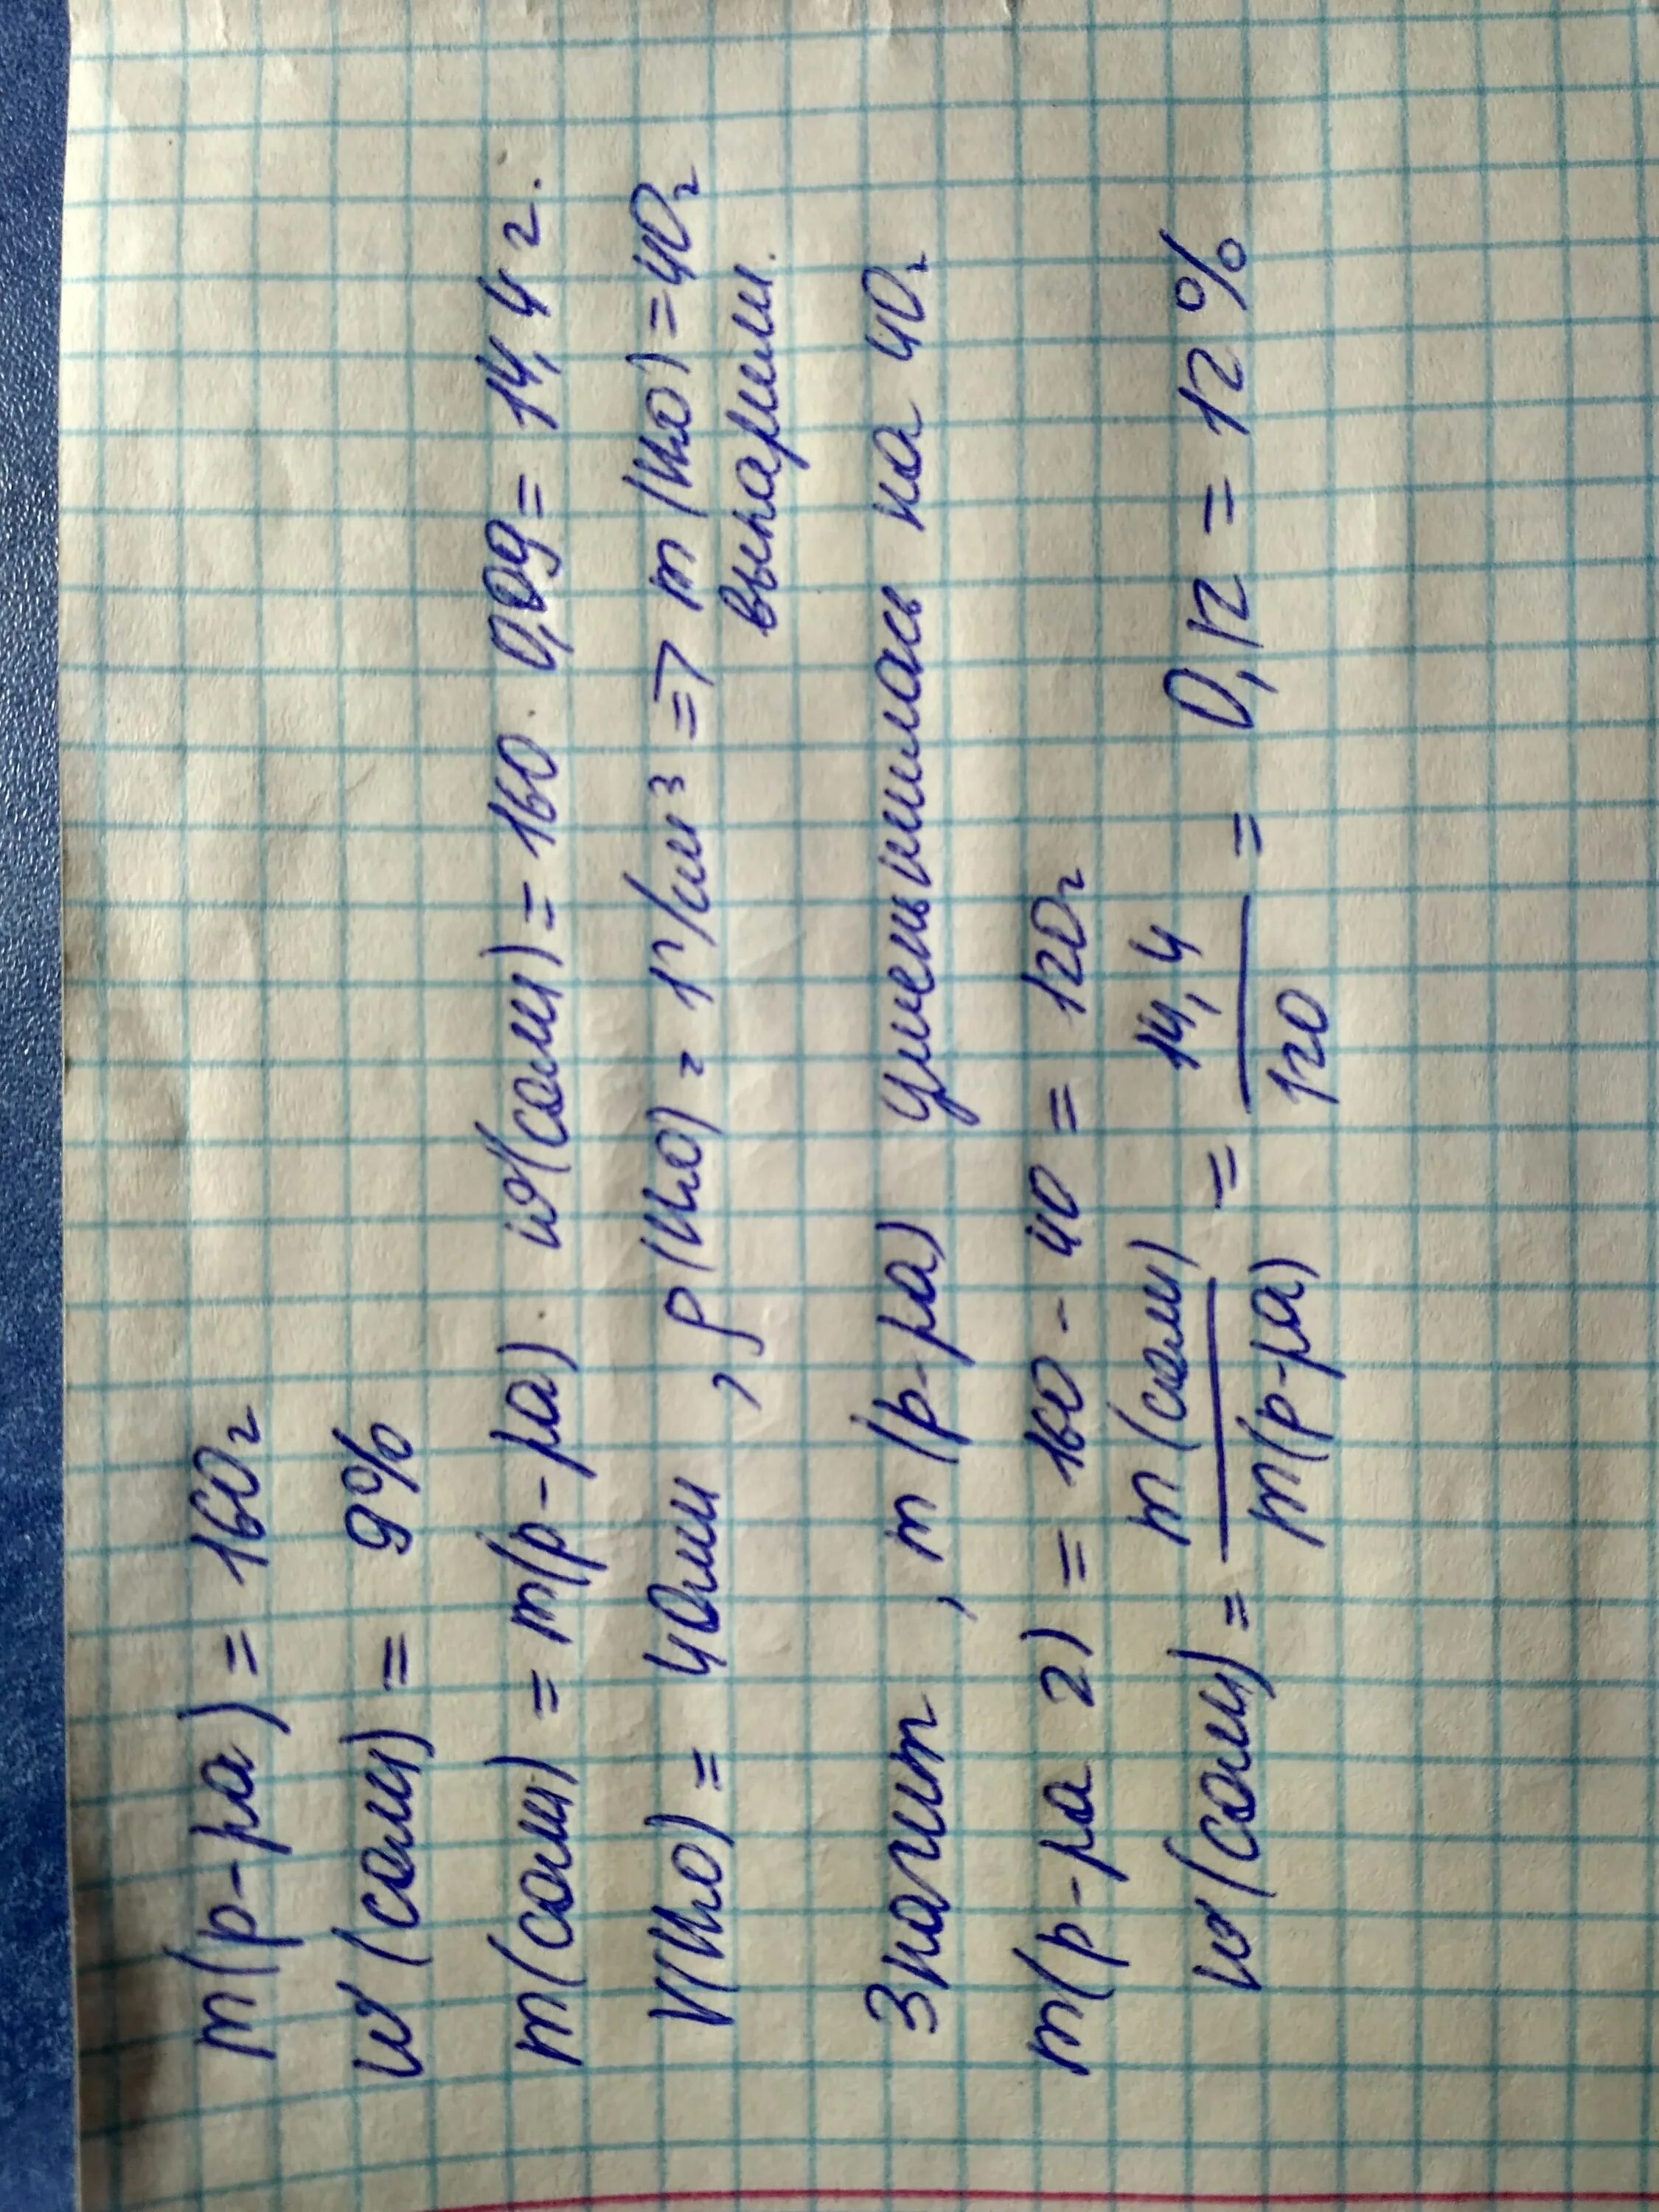 m(р-ра) = 160г
w(соли) = 9%
m(соли) = m(р-ра) · w(соли) = 160 · 0,09 = 14,4 г.
V(H2O) = 40мл, ρ(H2O) = 1г/см³ => m(H2O) = 40г
выпарили.
Значит, m(р-ра) уменьшилась на 40г
m(р-ра 2) = 160 - 40 = 120г
w(соли) = m(соли)/m(р-ра) = 14,4/120 = 0,12 = 12%